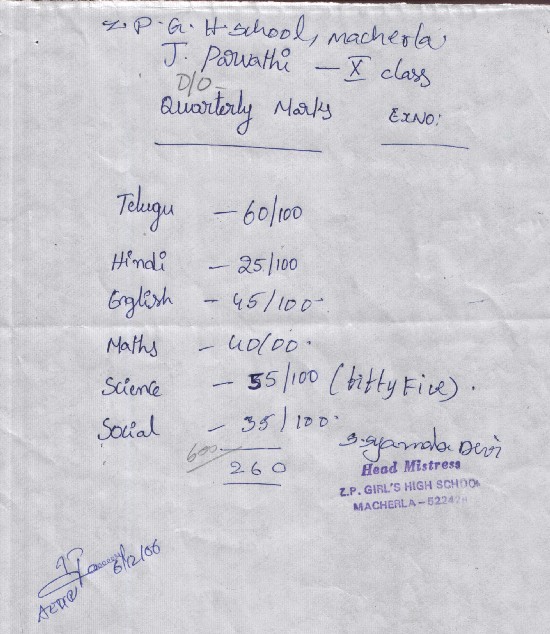 Z. P. G. H. School, Macherla
J. Parvathi - X class
D/O -
Quarterly Marks ExNO:
Telugu - 60/100
Hindi - 25/100
English - 45/100
Maths - 40/00
Science - 55/100 (fifty Five).
Social - 35/100
600
260
S. Syamala Devi
Head Mistress
Z.P. GIRL'S HIGH SCHOOL
MACHERLA - 52242
6/12/06